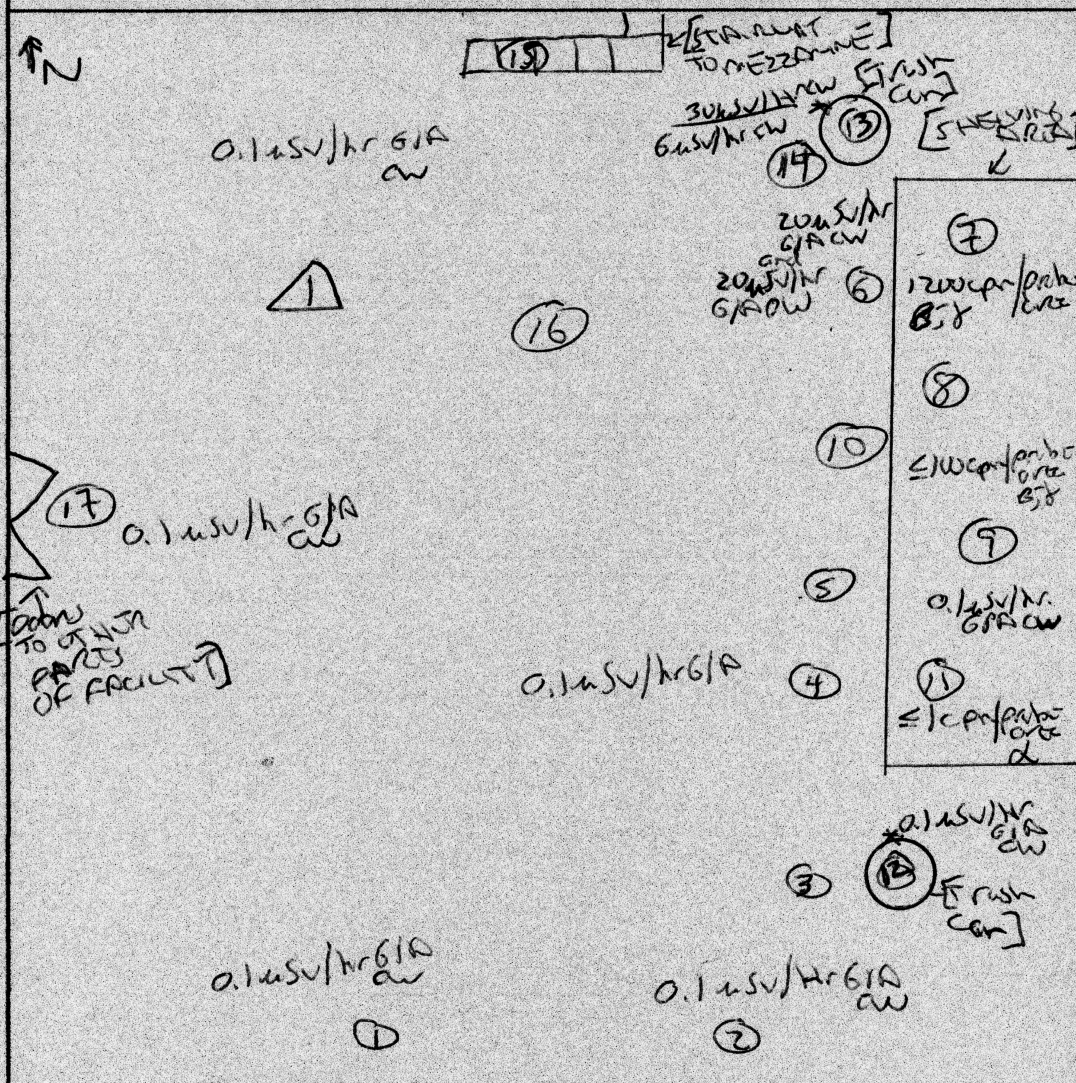 N
[STAIRWAY
TO MEZZANINE]
15
[Trash
Can]
30µSv/Hr CW
6µSv/hr CW
13
[SHELVING
AREA]
0.1µSv/hr G/A
CW
14
20µSv/hr
G/A CW
and
20µSv/hr
G/A OW
6
7
1200cpm/probe
area
B,γ
1
16
8
10
≤100cpm/probe
area
B,γ
17
0.1µSv/hr G/A
CW
9
5
0.1µSv/hr
G/A CW
[DOORS
TO OTHER
PARTS
OF FACILITY]
0.1µSv/hr G/A
4
11
≤1cpm/probe
area
α
0.1µSv/Hr
G/A
CW
3
12
[Trash
Can]
0.1µSv/hr G/A
CW
0.1µSv/Hr G/A
CW
1
2